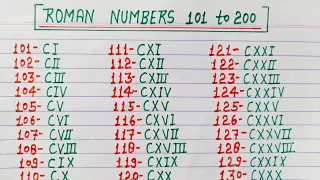 ROMAN NUMBERS 101 to 200
101- CI 111- CXI 121- CXXI
102- CII 112- CXII 122- CXXII
103- CIII 113- CXIII 123- CXXIII
104- CIV 114- CXIV 124- CXXIV
105- CV 115- CXV 125- CXXV
106- CVI 116- CXVI 126- CXXVI
107- CVII 117- CXVII 127- CXXVII
108- CVIII 118- CXVIII 128- CXXVIII
109- CIX 119- CXIX 129- CXXIX
110- CX 120- CXX 130- CXXX